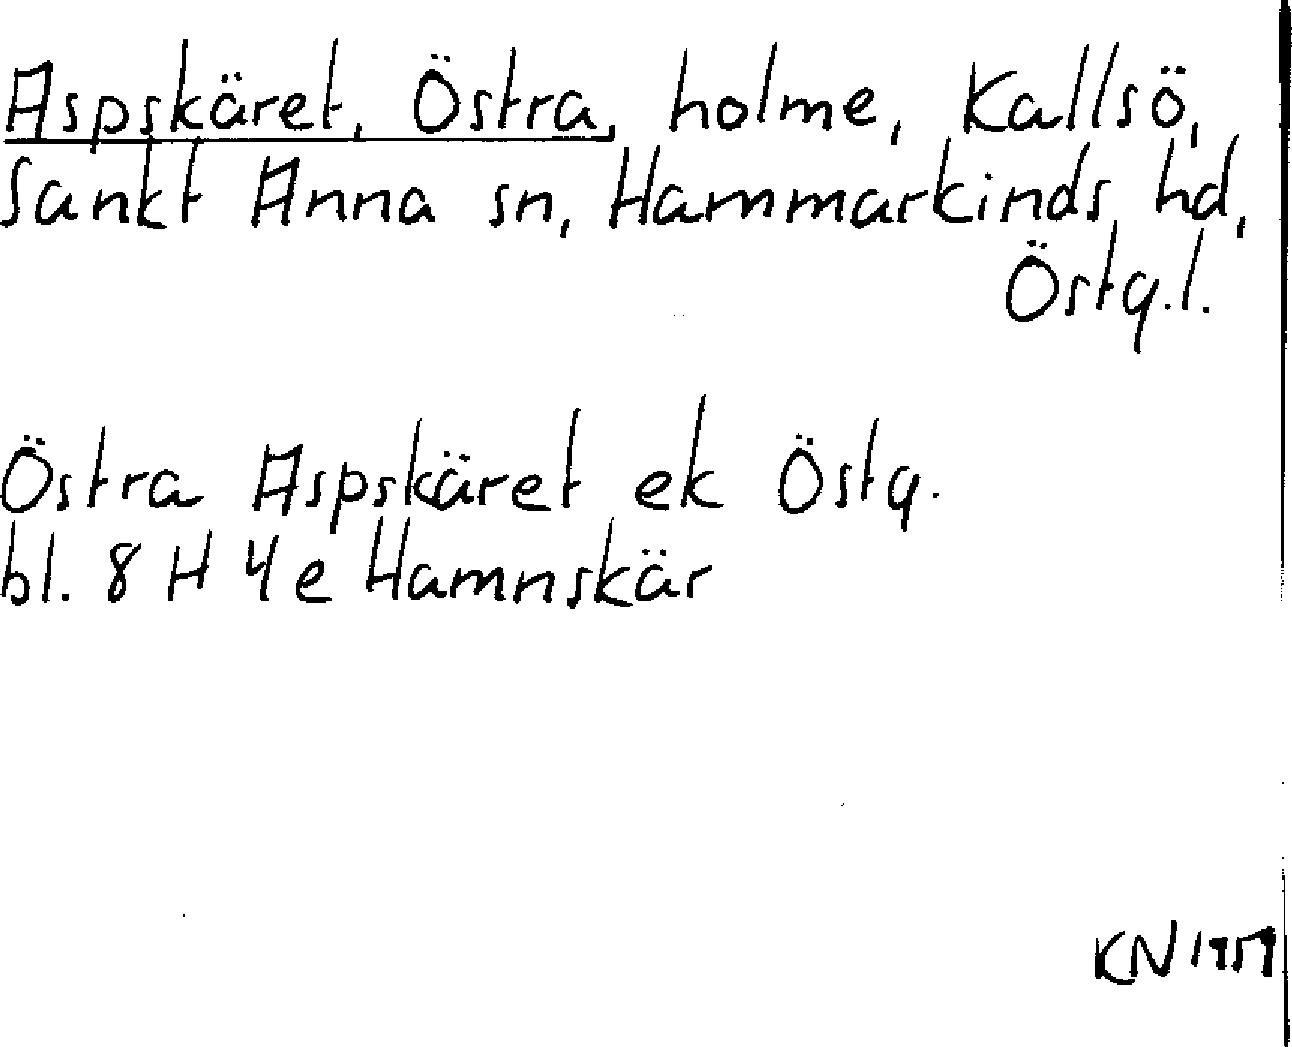 Aspskäret, Östra, holme, Kallsö,
Sankt Anna sn, Hammarkinds hd,
Östg.l.
Östra Aspskäret ek Östg.
bl. 8 H 4 e Hamnskär
KN